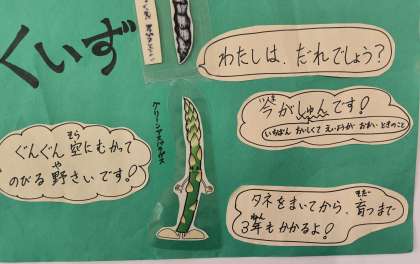 くいず
わたしは、だれでしょう?
グリーンアスパラガス
いま
今がしゅんです!
いちばん おいしくて えいようが おおい ときのこと
そら
ぐんぐん空にむかって
や
のびる野さいです!
タネをまいてから、育つまで
そだ
3年もかかるよ!
ねん